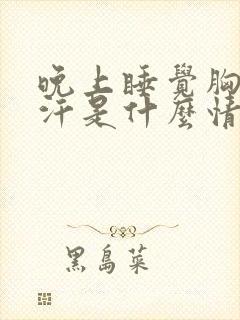 晚上睡覺胸
汗是什麼情
黑島菜